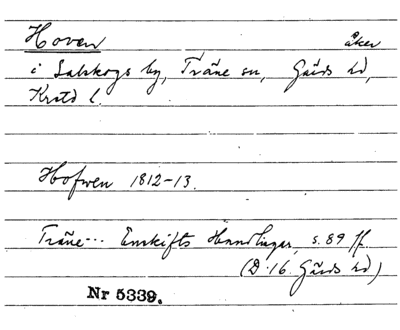 Hoven åker
i Salskogs by, Träne sn, Gärds hd,
Krstd l.
Hofwen 1812-13.
Träne... Enskifts Handlingar, s. 89 ff.
(D.16. Gärds hd)
Nr 5339.